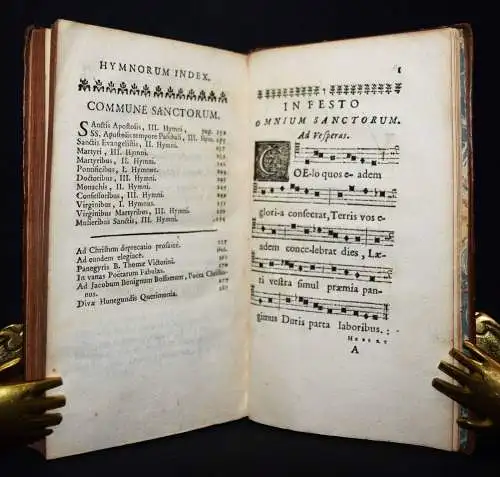 HYMNORUM INDEX.
COMMUNE SANCTORUM.
SAnctis Apostolis, III. Hymni, pag. 152
SS. Apostolis tempore Paschali, III. Hym.
Sanctis Evangelistis, II. Hymni.
Martyri, III. Hymni.
Martyribus, II. Hymni.
Pontificibus, I. Hymnus.
Doctoribus, III. Hymni.
Monachis, II. Hymni.
Confessoribus, III. Hymni.
Virginibus, I. Hymnus.
Virginibus Martyribus, III. Hymni.
Mulieribus Sanctis, III. Hymni.
Ad Christum deprecatio prosaïce.
Ad eundem elegiace.
Panegyris B. Thomæ Victorini.
In vanas Poetarum Fabulas.
Ad Jacobum Benignum Bossuetum, Poeta Christia-
nus.
Divæ Hunegundis Querimonia.
1
IN FESTO
OMNIUM SANCTORUM.
Ad Vesperas.
COE-lo quos e- adem
glori-a consecrat, Terris vos e-
adem conce-lebrat dies, Læ-
ti vestra simul præmia pan-
gimus Duris parta laboribus.
A